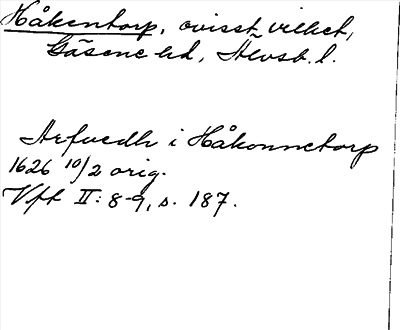 Håkentorp, ovisst vilket,
Gäsene hd, Älvsb. l.
Arfuedh i Håkonnetorp
1626 10/2 orig.
Vft II: 8-9, s. 187.